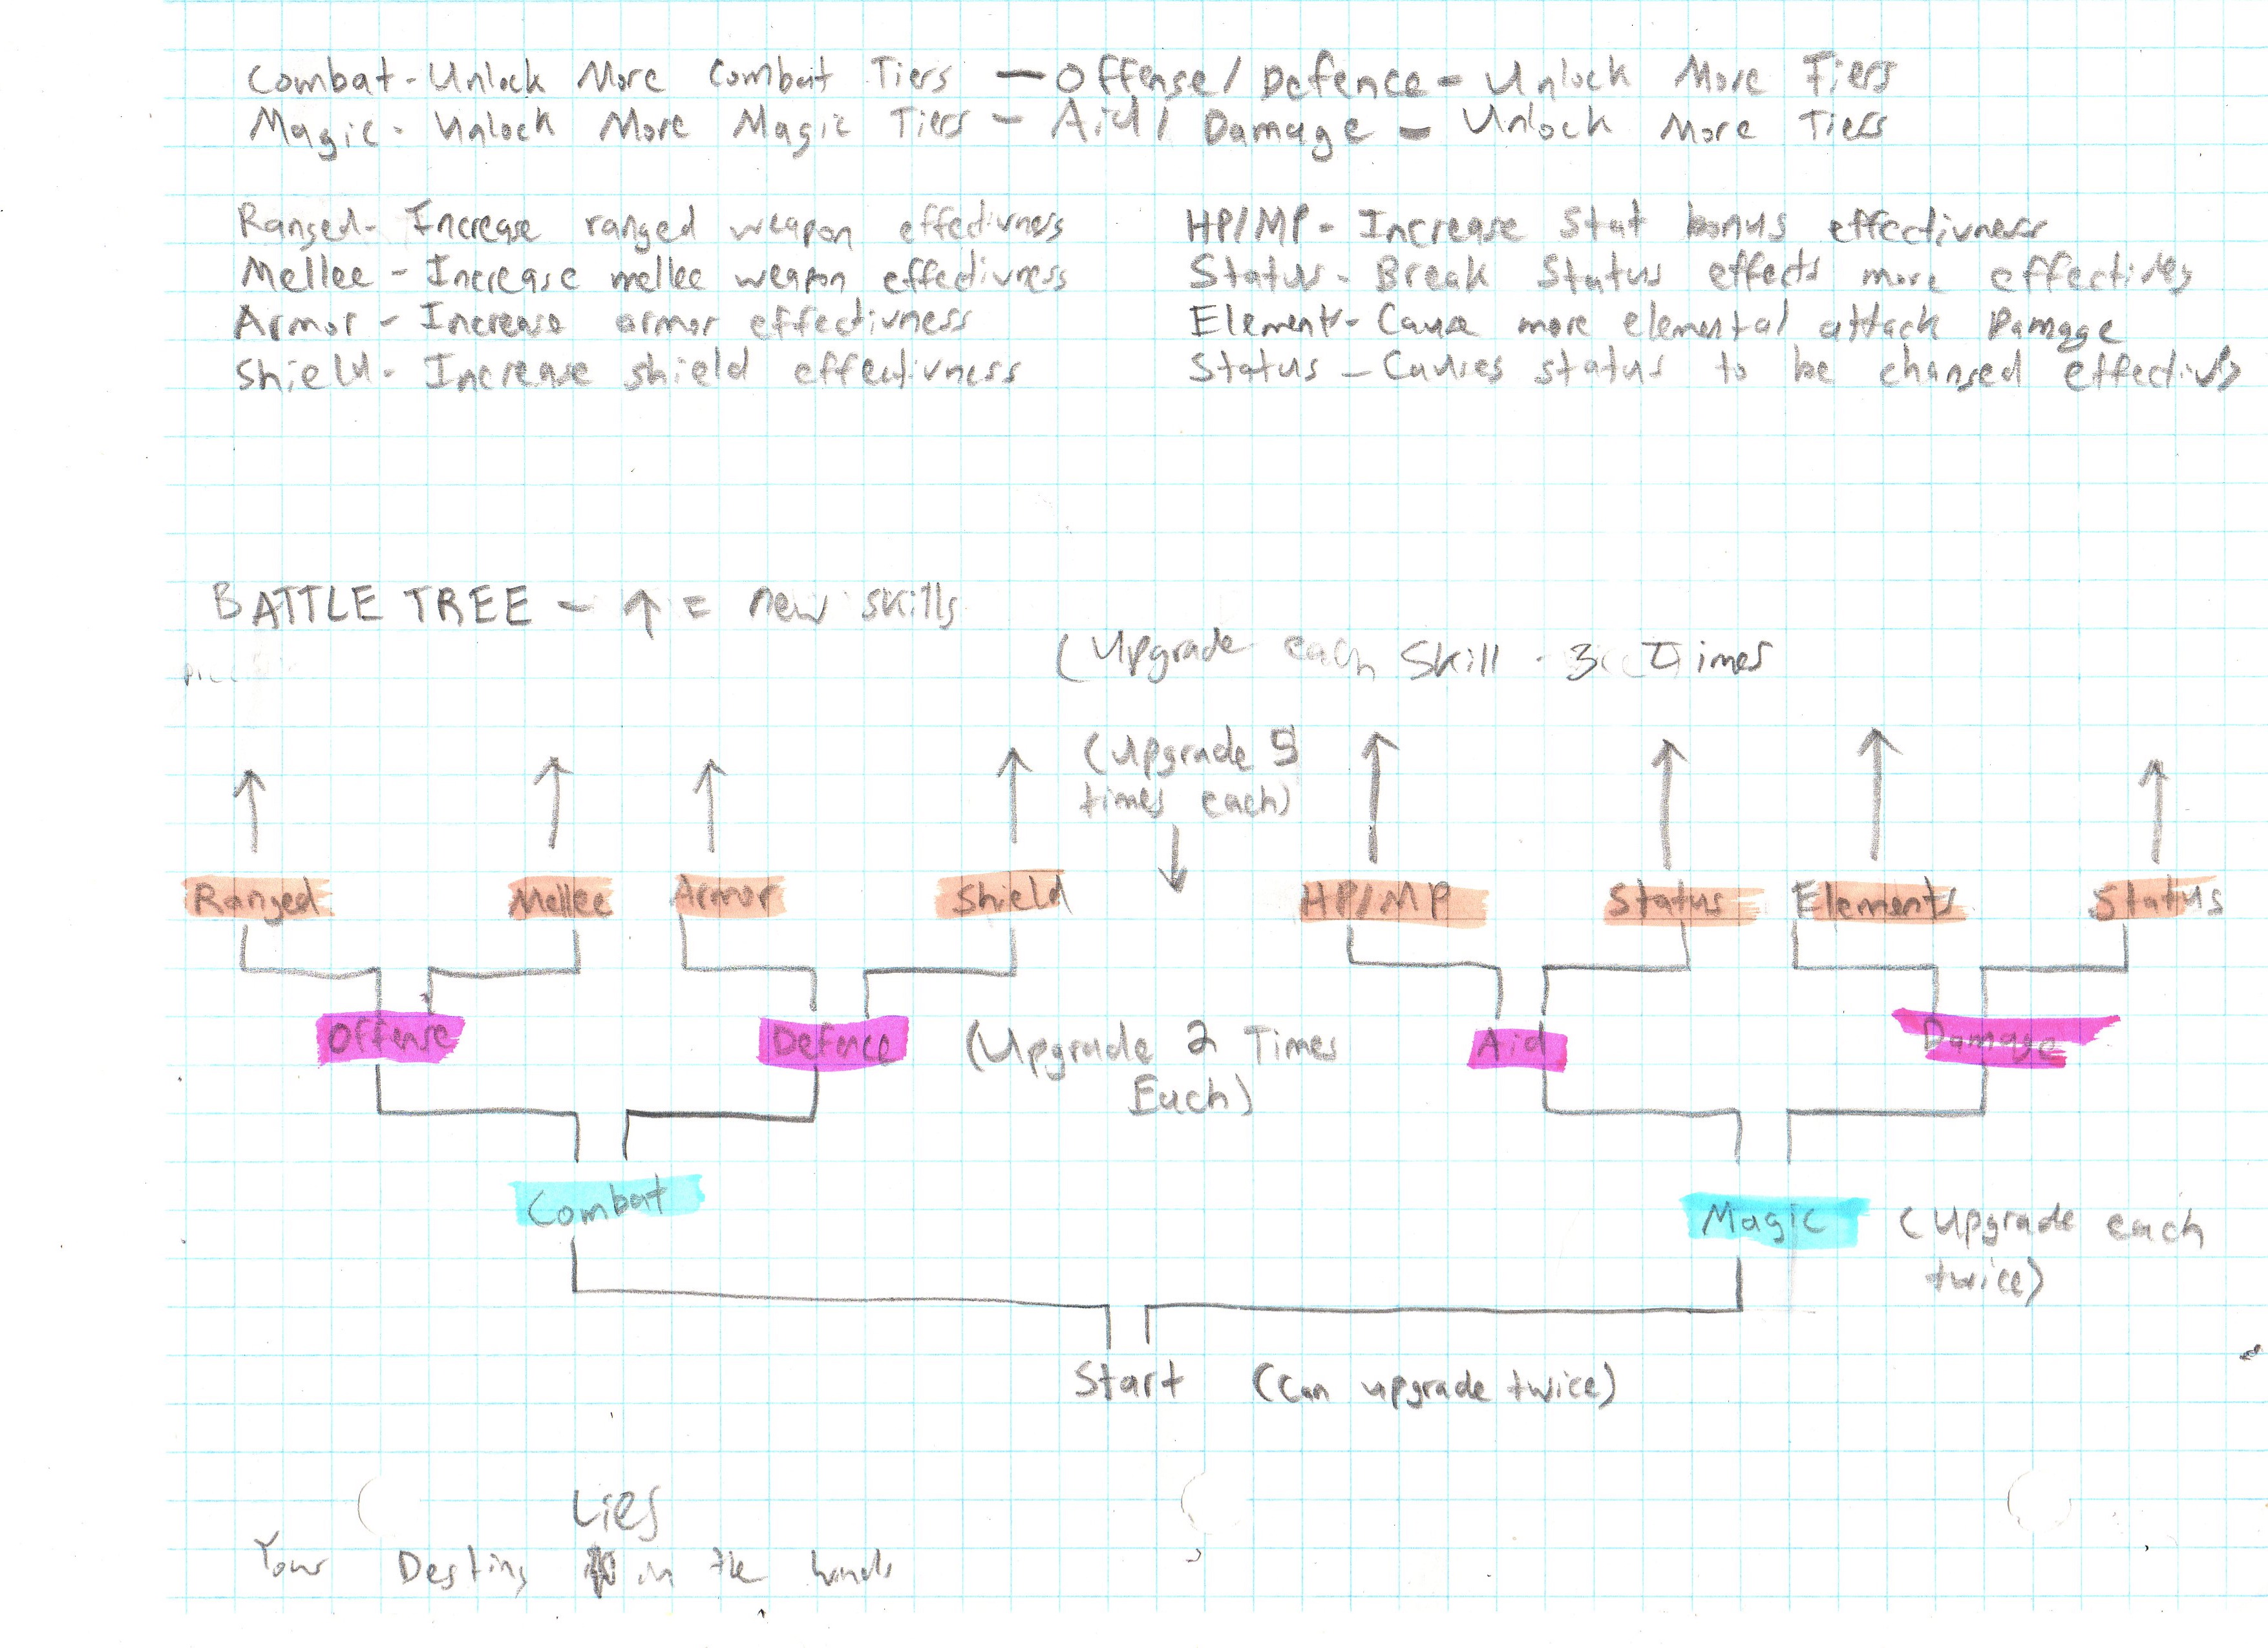 Combat - Unlock More Combat Tiers — Offense / Defence - Unlock More Tiers
Magic - Unlock More Magic Tiers - Aid / Damage - Unlock More Tiers
Ranged - Increase ranged weapon effectivness
Mellee - Increase mellee weapon effectivness
Armor - Increase armor effectivness
Shield - Increase shield effectivness
HP/MP - Increase Stat bonus effectivness
Status - Break Status effects more
Elements - Cause more elemental attack Damage
Status - Causes status to be changed
BATTLE TREE - ↑ = new skills
(Upgrade each Skill - 3 Times
(Upgrade 5
times each)
Ranged Mellee Armor Shield HP/MP Status Elements Status
Offense Defence (Upgrade 2 Times Aid Damage
Each)
Combat Magic (Upgrade each
twice)
Start (Can upgrade twice)
Lies
Your Destiny in the